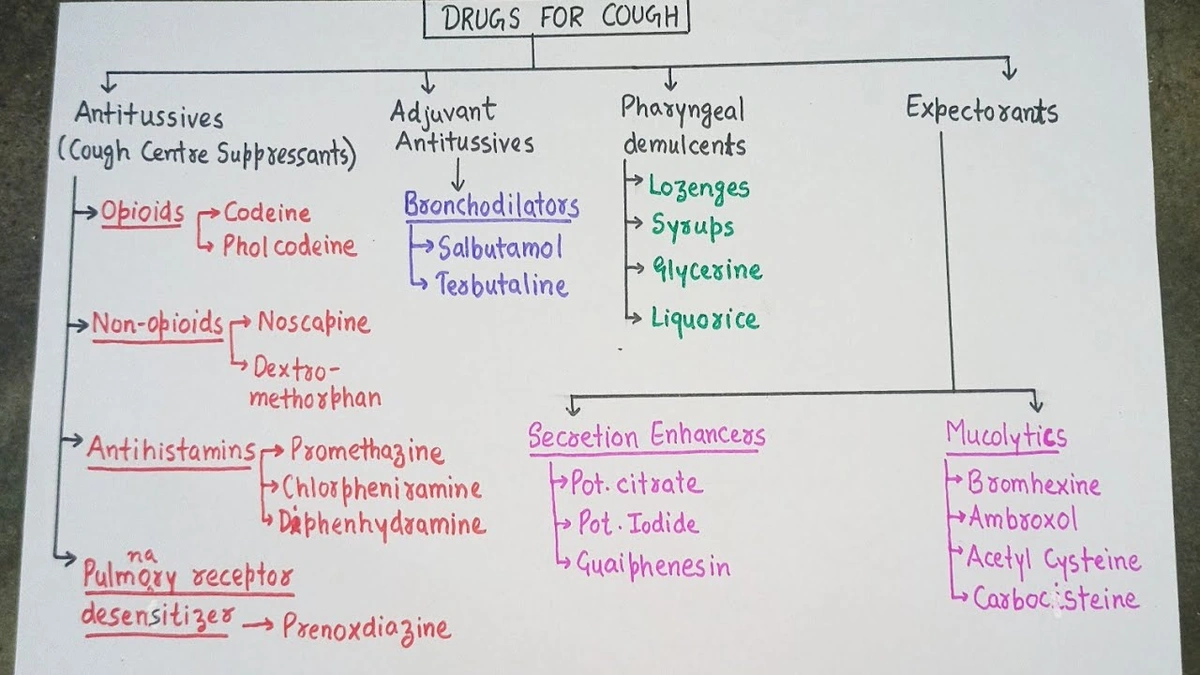 DRUGS FOR COUGH
Antitussives
(Cough Centre Suppressants)
Opioids
Codeine
Pholcodeine
Non-opioids
Noscapine
Dextro-
methorphan
Antihistamins
Promethazine
Chlorpheniramine
Diphenhydramine
Pulmonary receptor
desensitizer
Prenoxdiazine
Adjuvant
Antitussives
Bronchodilators
Salbutamol
Terbutaline
Pharyngeal
demulcents
Lozenges
Syrups
Glycerine
Liquorice
Expectorants
Secretion Enhancers
Pot. citrate
Pot. Iodide
Guaiphenesin
Mucolytics
Bromhexine
Ambroxol
Acetyl Cysteine
Carbocisteine